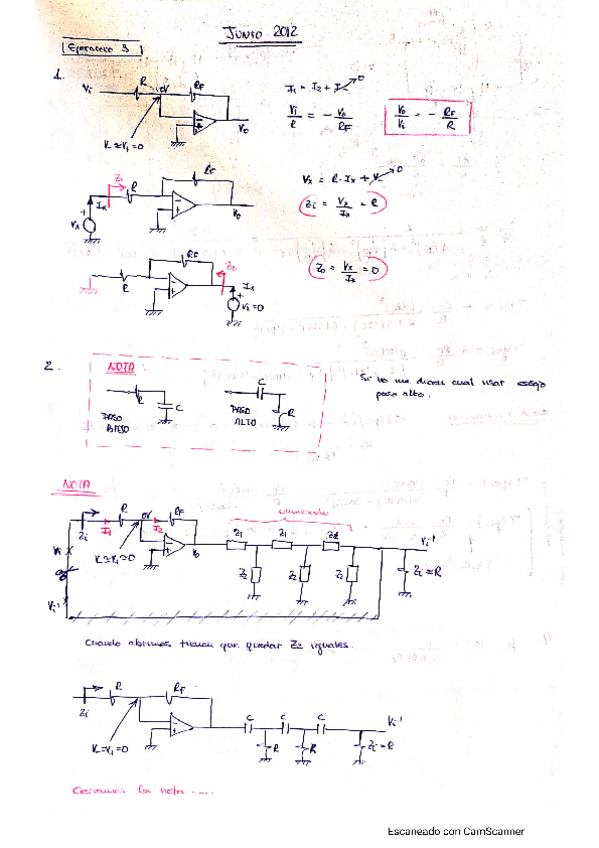 JUNIO 2012
Ejercicio 3
1.
Vi R 0V RF
V- ≈ V+ = 0
Vo
I1 = I2 + I- 0
Vi/R = - Vo/RF
Vo/Vi = - RF/R
Zi R RF
Ix Vx Vo
Vx = R·Ix + V- 0
Zi = Vx/Ix = R
R RF Zo
Ix
Vx = 0
Zo = Vx/Ix = 0
2.
NOTA:
R C
PASO BAJO
C R
PASO ALTO
Si no me dicen cual usar escojo
paso alto.
NOTA
Zi I1 R 0V I2 RF
Vo Z1 Z1
Z2 Z2 Z2
Vi'
Zi = R
Vi
Vi'
Cuando abrimos tienen que quedar Z2 iguales.
Zi R RF
V- = V+ = 0
C C C Vi'
R R Zi = R
Cerramos la
Escaneado con CamScanner